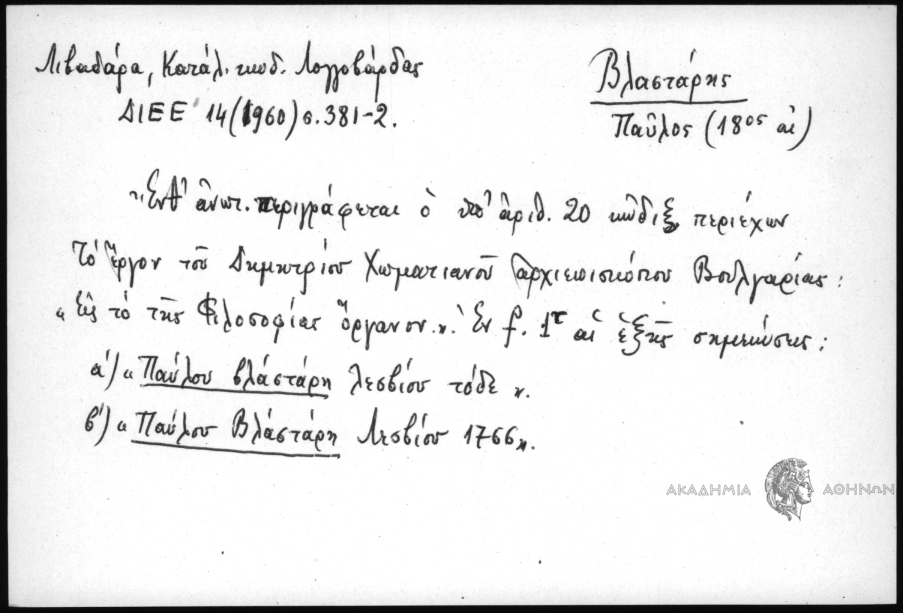 Λιβαδάρα, Κατάλ. κωδ. Λογγοβάρδας
ΔΙΕΕ 14 (1960) σ. 381-2.
Βλαστάρης
Παῦλος (18ος αἰ)
Ἐνθ' ἀνωτ. περιγράφεται ὁ ὑπ' ἀριθ. 20 κῶδιξ περιέχων
τὸ ἔργον τοῦ Δημητρίου Χωματιανοῦ ἀρχιεπισκόπου Βουλγαρίας:
« Εἰς τὸ τῆς Φιλοσοφίας ὄργανον ». Ἐν f. 1r αἱ ἑξῆς σημειώσεις:
α') « Παύλου βλαστάρη λεσβίου τόδε ».
β') « Παύλου Βλαστάρη Λεσβίου 1766 ».
ΑΚΑΔΗΜΙΑ ΑΘΗΝΩΝ